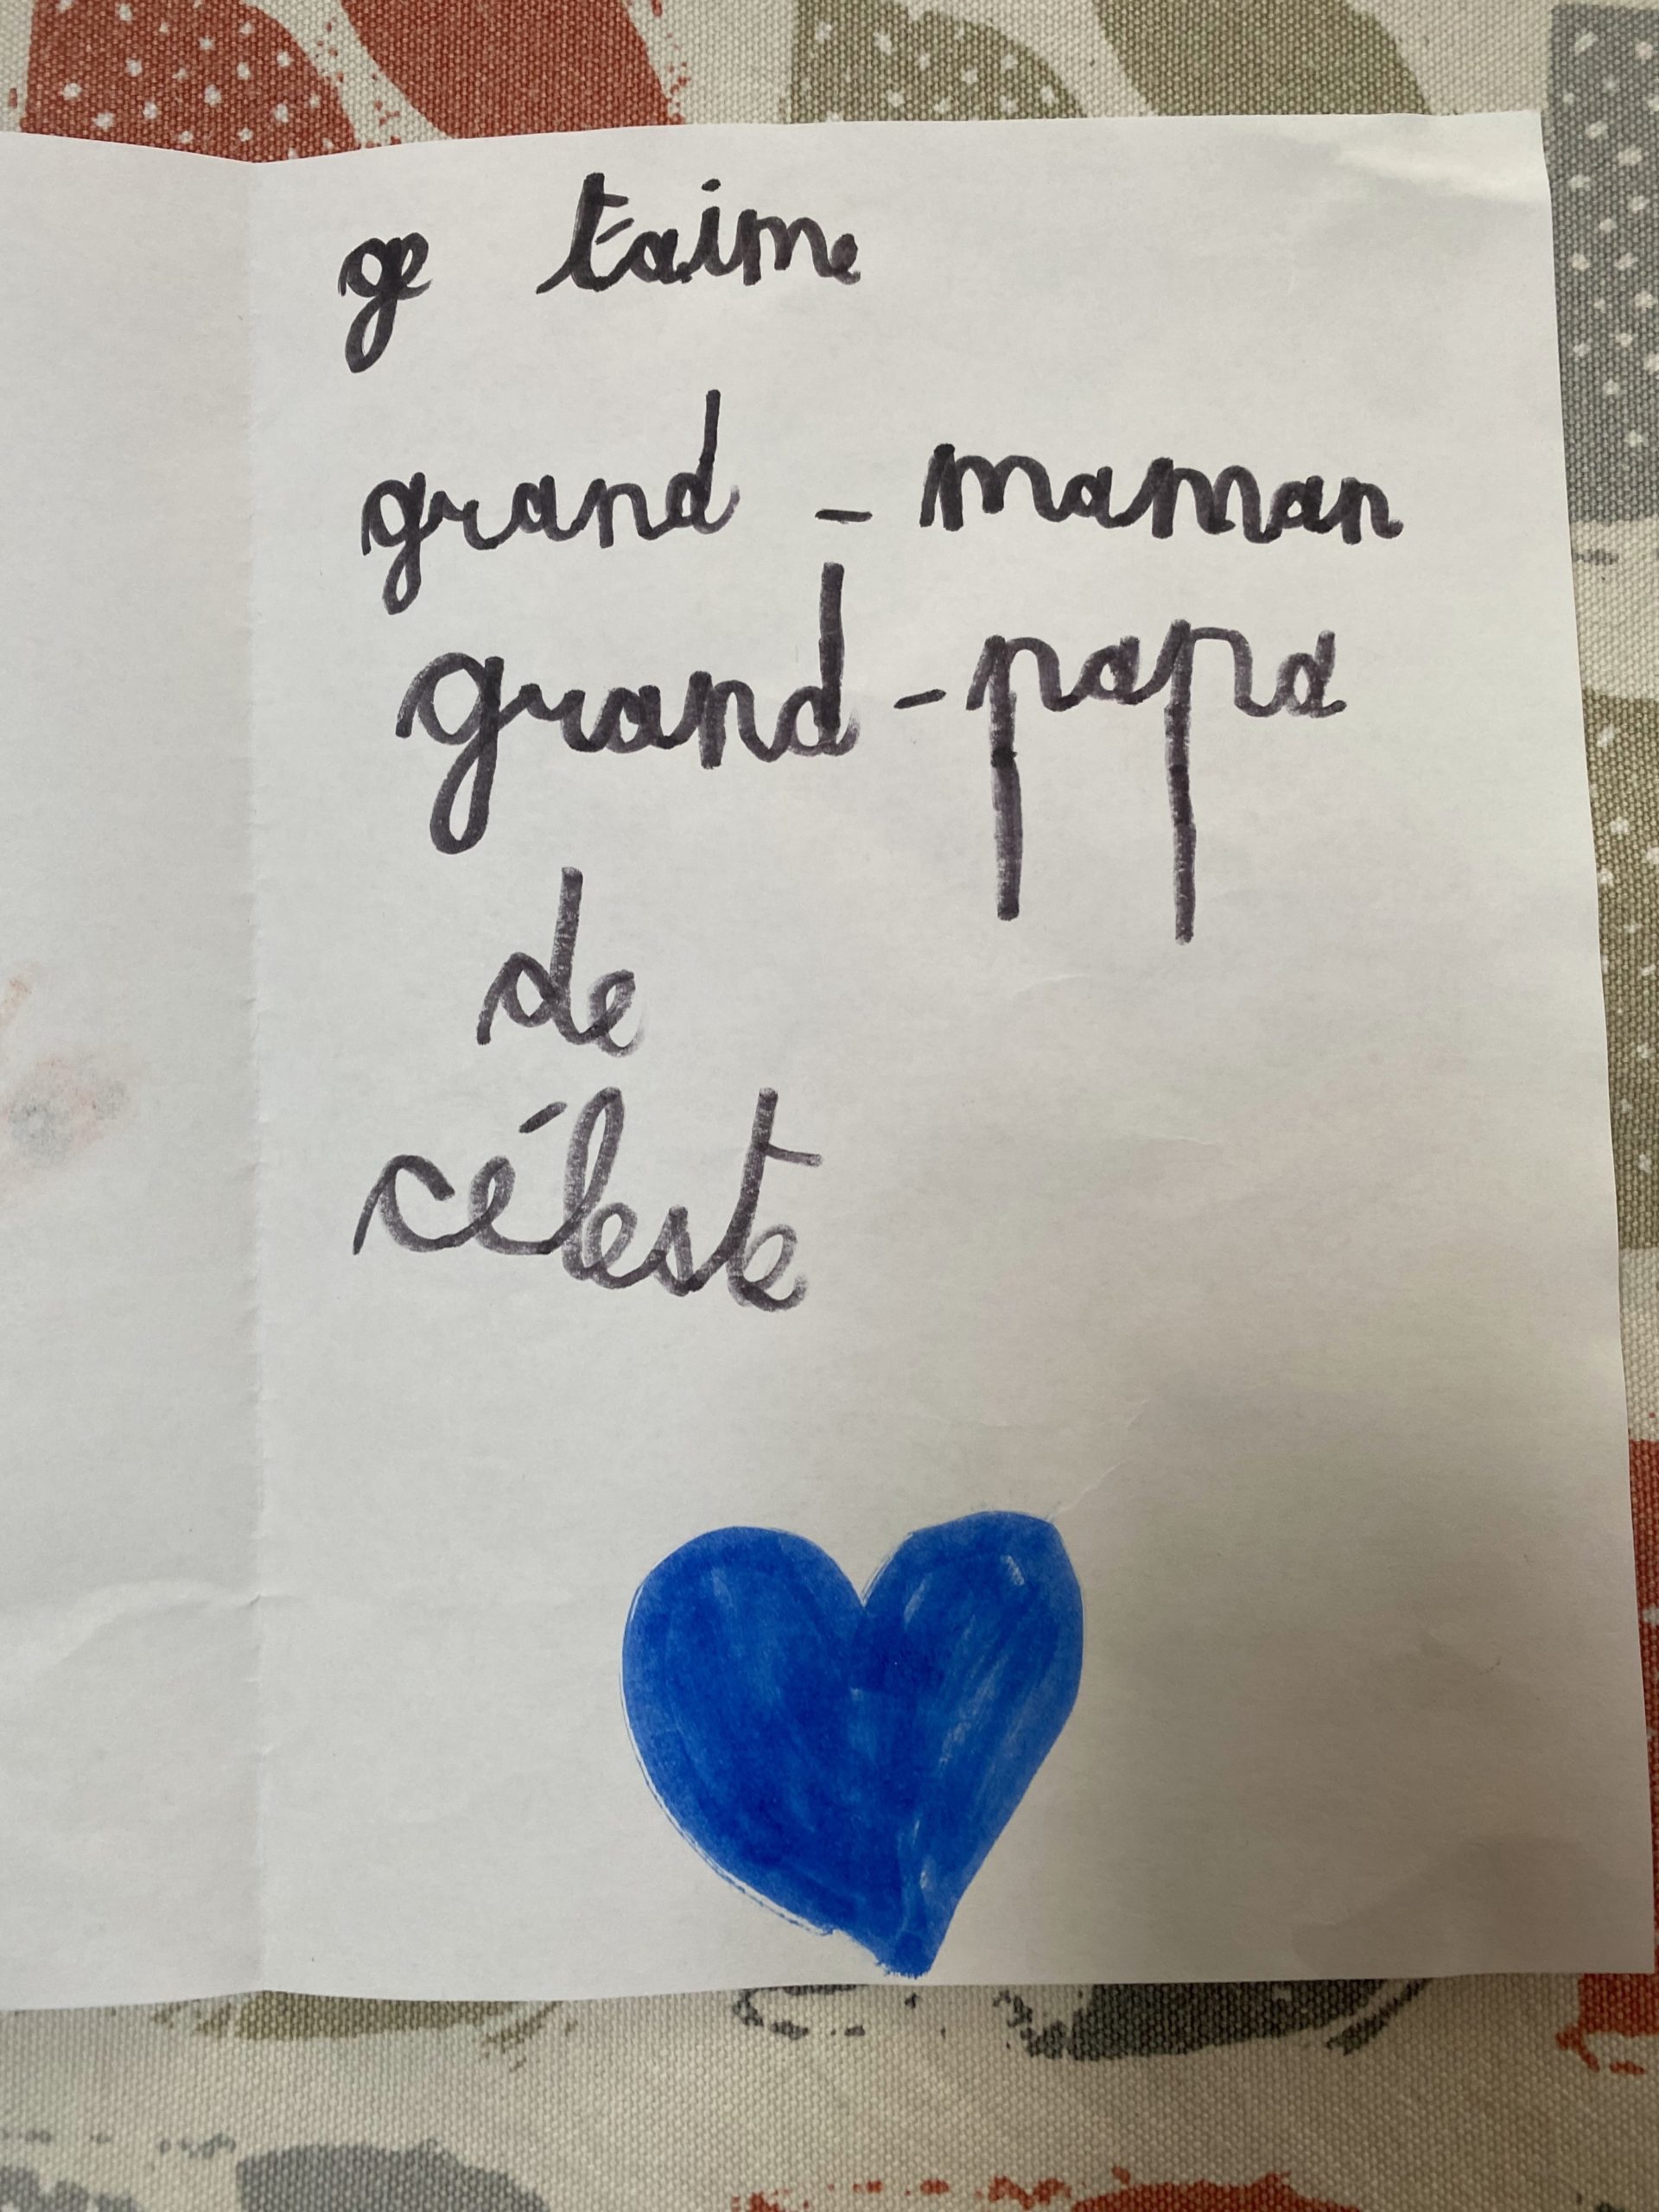 ge t'aime
grand - maman
grand - papa
de
céleste